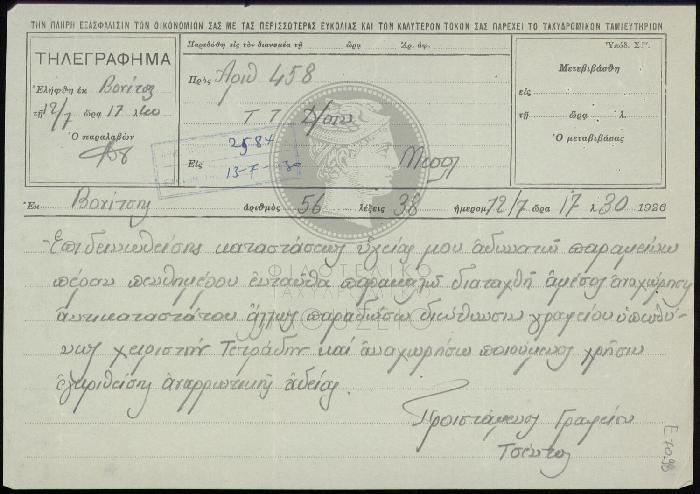 ΤΗΝ ΠΛΗΡΗ ΕΞΑΣΦΑΛΙΣΙΝ ΤΩΝ ΟΙΚΟΝΟΜΙΩΝ ΣΑΣ ΜΕ ΤΑΣ ΠΕΡΙΣΣΟΤΕΡΑΣ ΕΥΚΟΛΙΑΣ ΚΑΙ ΤΟΝ ΚΑΛΥΤΕΡΟΝ ΤΟΚΟΝ ΣΑΣ ΠΑΡΕΧΕΙ ΤΟ ΤΑΧΥΔΡΟΜΙΚΟΝ ΤΑΜΙΕΥΤΗΡΙΟΝ
ΤΗΛΕΓΡΑΦΗΜΑ
Ἐλήφθη ἐκ Βονίτσης
τῇ 12/7 ὥρᾳ 17 λ 40
Ὁ παραλαβὼν
Παρεδόθη εἰς τὸν διανομέα τῇ ὥρᾳ Ἀρ. ἀφ.
Πρὸς Ἀριθ 458
Τ Τ Τ Δ/σιν
2584
Εἰς 13-7-30 Μεσολ
Ὑπόδ. Σ.Π.
Μετεβιβάσθη
εἰς
τῇ ὥρᾳ λ.
Ὁ μεταβιβάσας
Ἐκ Βονίτσης ἀριθμὸς 56 λέξεις 38 ἡμερομ 12/7 ὥρα 17 λ. 30 1926
Ἐπιδεινωθείσης καταστάσεως ὑγείας μου ἀδυνατῶ παραμείνω
πέραν πενθημέρου ἐνταῦθα παρακαλῶ διαταχθῇ ἀμέσως ἀναχώρησις
ἀντικαταστάτου ἄλλως παραδώσω διεύθυνσιν γραφείου ὑπευθύ-
νως χειριστὴν Τετράδην καὶ ἀναχωρήσω ποιούμενος χρῆσιν
ἐγκριθείσης ἀναρρωτικῆς ἀδείας.
Προιστάμενος Γραφείου
Τσέντος
ΦΙΛΟΤΕΛΙΚΟ
ΜΟΥΣΕΙΟ